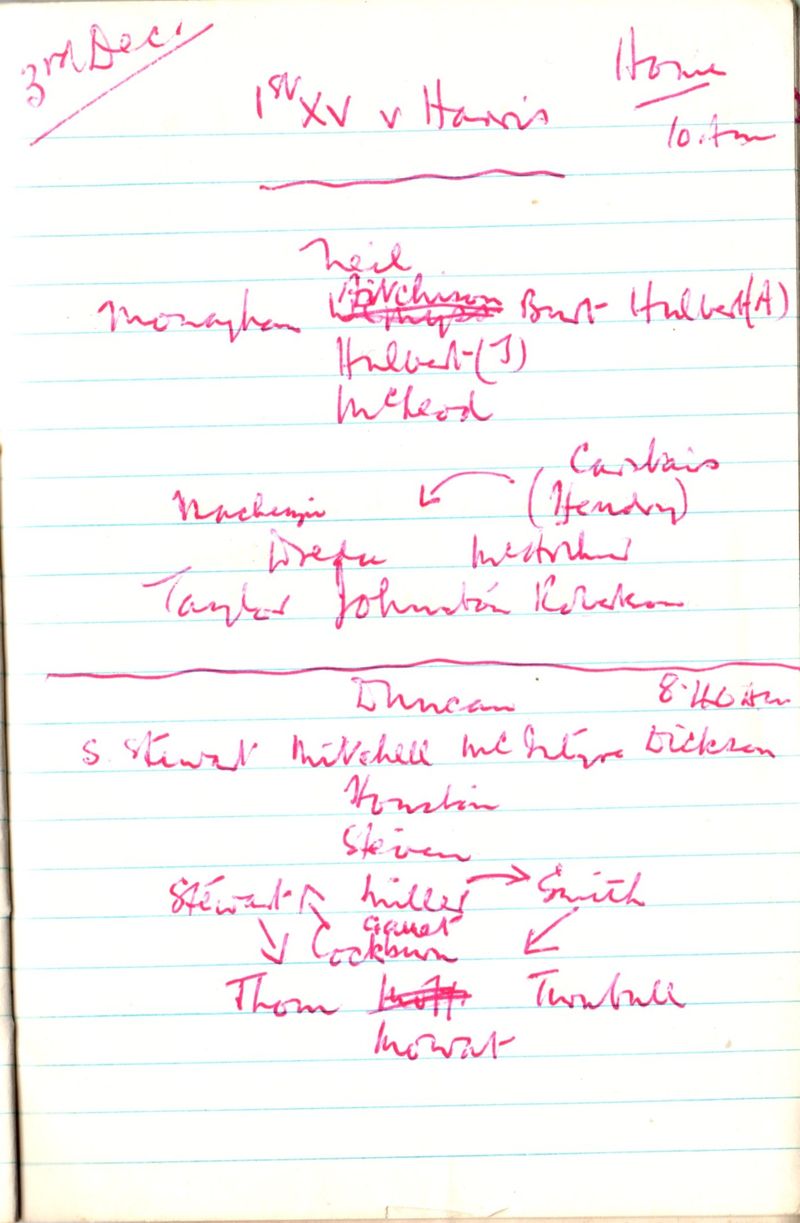 3rd Dec.
Home
1st XV v Harris
10.Am
Neil
Aitchison
Monaghan Burt Hulbert(A)
Hulbert (J)
McLeod
Carstairs
Mackenzie (Hendry)
McArthur
Taylor Johnston Robertson
Duncan 8.40 Am
S. Stewart Mitchell McIntyre Dickson
Houston
Steven
Stewart Miller Smith
Cockburn
Thom Turnbull
Mowat